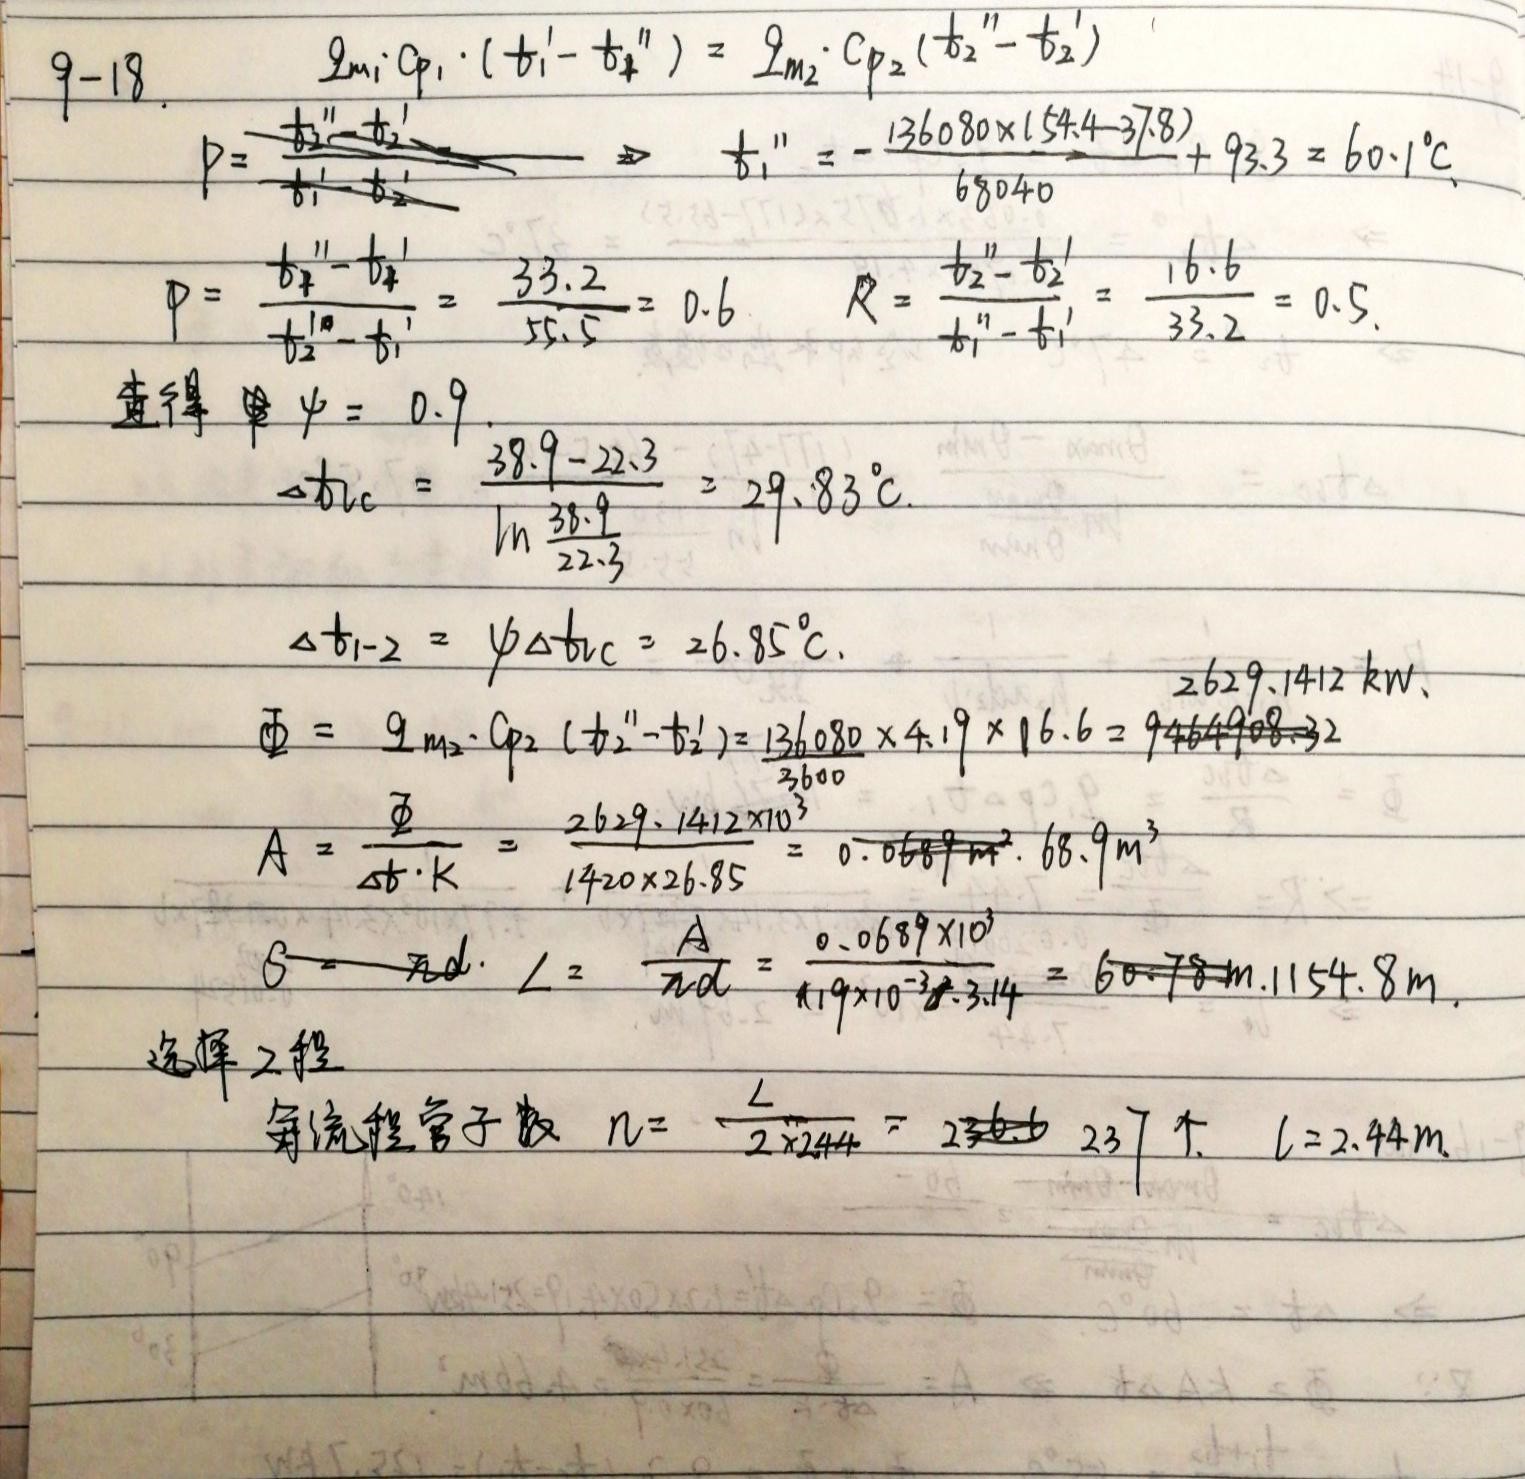 9-18. qm₁·Cp₁·(t₁'-t₁'') = qm₂·Cp₂(t₂''-t₂')
P = (t₂''-t₂')/(t₁'-t₂') ⇒ t₁'' = -136080×(54.4-37.8)/68040 + 93.3 = 60.1℃.
P = (t₁''-t₁')/(t₂'-t₁') = 33.2/55.5 = 0.6 R = (t₂''-t₂')/(t₁''-t₁') = 16.6/33.2 = 0.5.
查得 ψ = 0.9.
△tlc = (38.9-22.3)/(ln 38.9/22.3) = 29.83℃.
△t₁₋₂ = ψ△tlc = 26.85℃.
2629.1412 kW.
Φ = qm₂·Cp₂(t₂''-t₂') = 136080/3600 × 4.19 × 16.6 = 9464908.32
A = Φ/(△t·K) = 2629.1412×10³/(1420×26.85) = 0.0689m². 68.9m³
S = πd. L = A/(πd) = 0.0689×10³/(19×10⁻³×3.14) = 60.78m. 1154.8m.
选择2程
每流程管子数 n = L/(2×2.44) = 236.6 237个. l=2.44m.